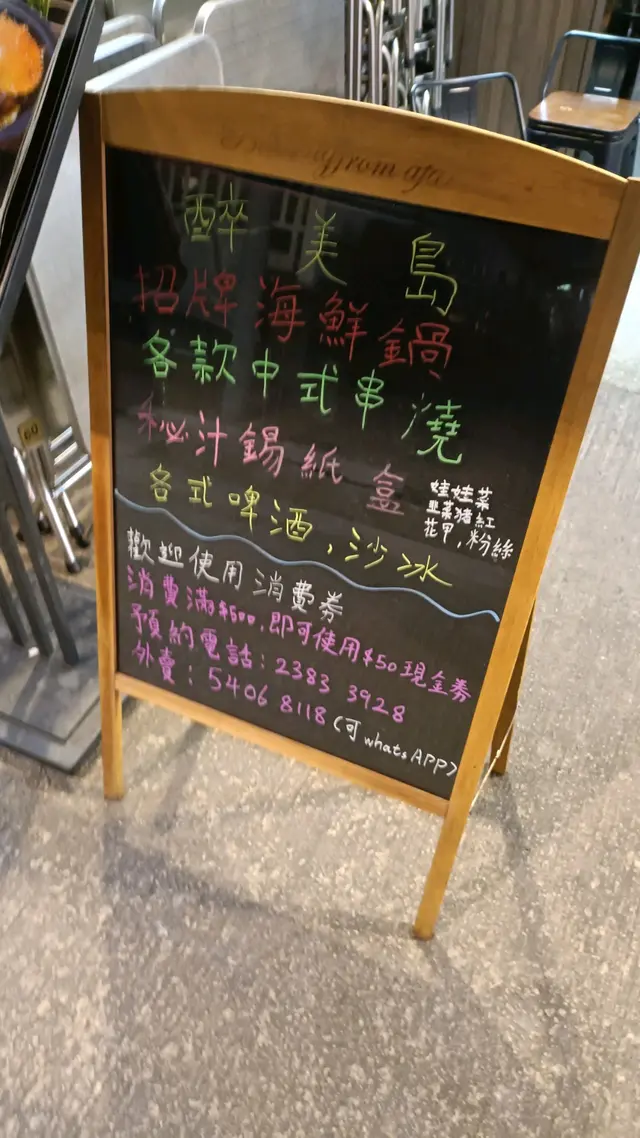 醉美島
招牌海鮮鍋
各款中式串澆
秘汁錫紙盒
娃娃菜
韭菜猪紅
花甲,粉絲
各式啤酒,沙冰
歡迎使用消費券
消費滿$500,即可使用$50現金券
預約電話:2383 3928
外賣:5406 8118(可whatsAPP)
60